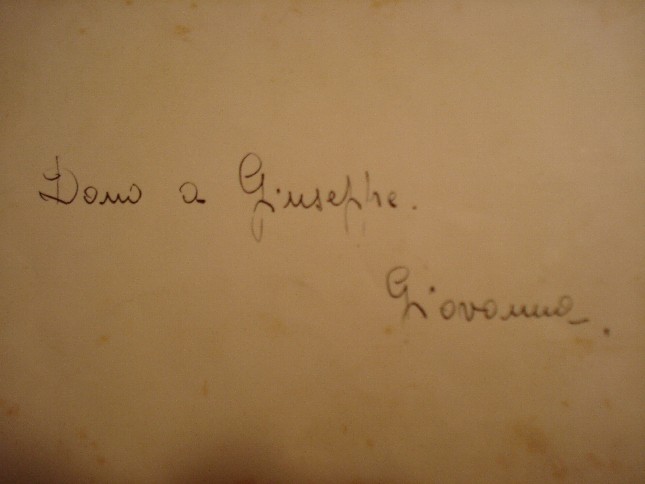 Dono a Giuseppe.
Giovanna.